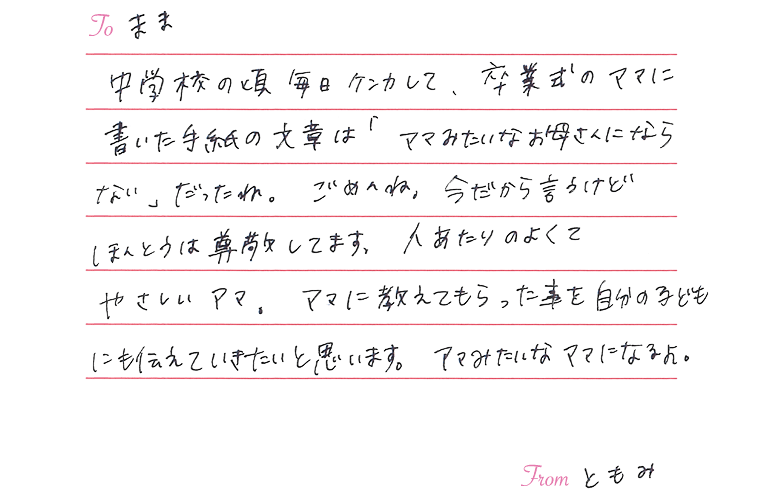 To まま
中学校の頃 毎日ケンカして、卒業式のママに
書いた手紙の文章は「ママみたいなお母さんになら
ない」だったね。ごめんね。今だから言うけど
ほんとうは尊敬してます。人あたりのよくて
やさしいママ。ママに教えてもらった事を自分の子ども
にも伝えていきたいと思います。ママみたいなママになるよ。
From ともみ